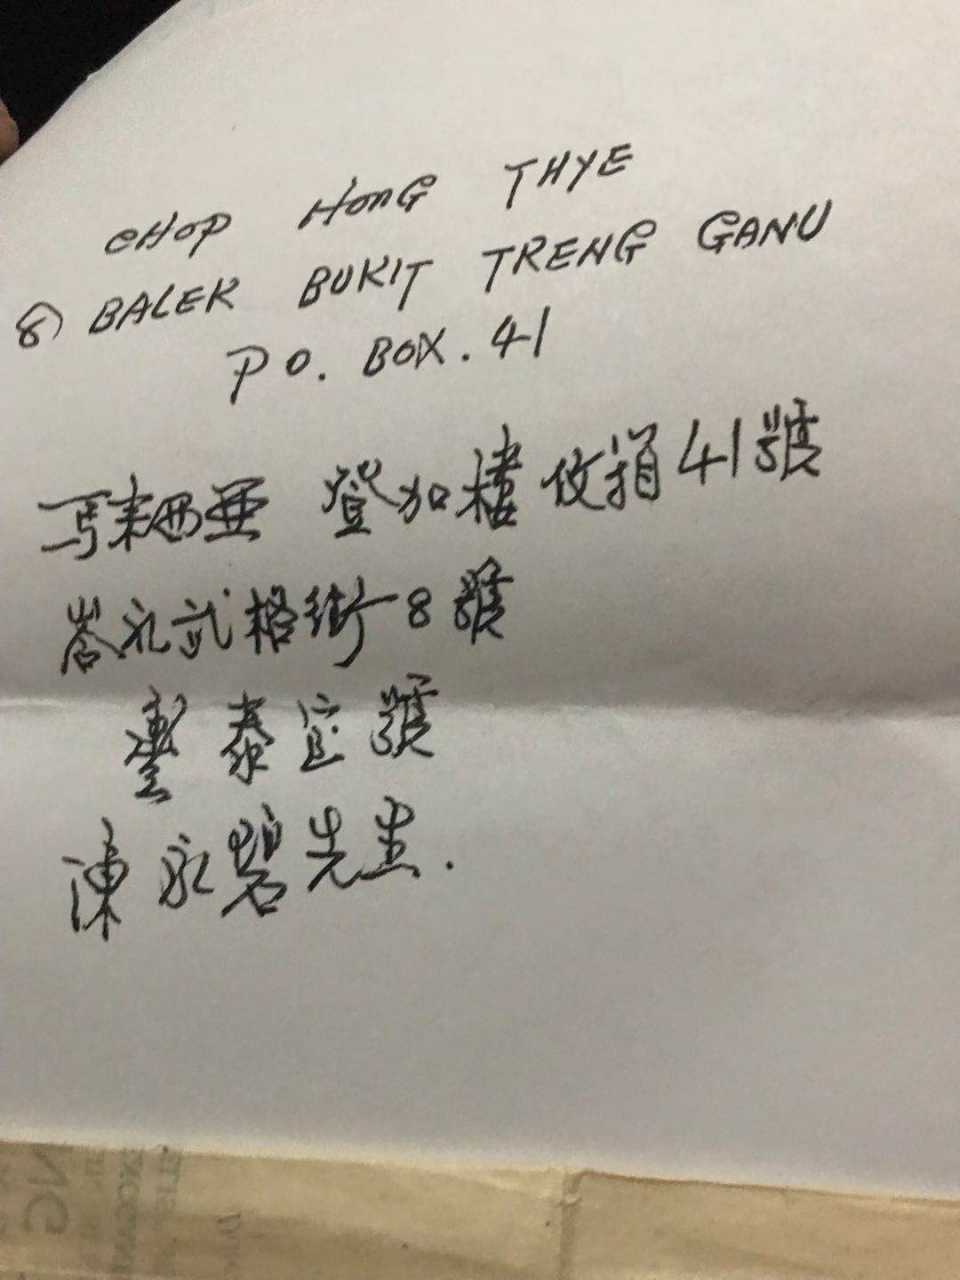 CHOP HONG THYE
8) BALEK BUKIT TRENG GANU
P O. BOX. 41
馬來西亞 登加樓 41號
峇礼武格街 8 號
泰 號
陳永碧先生.